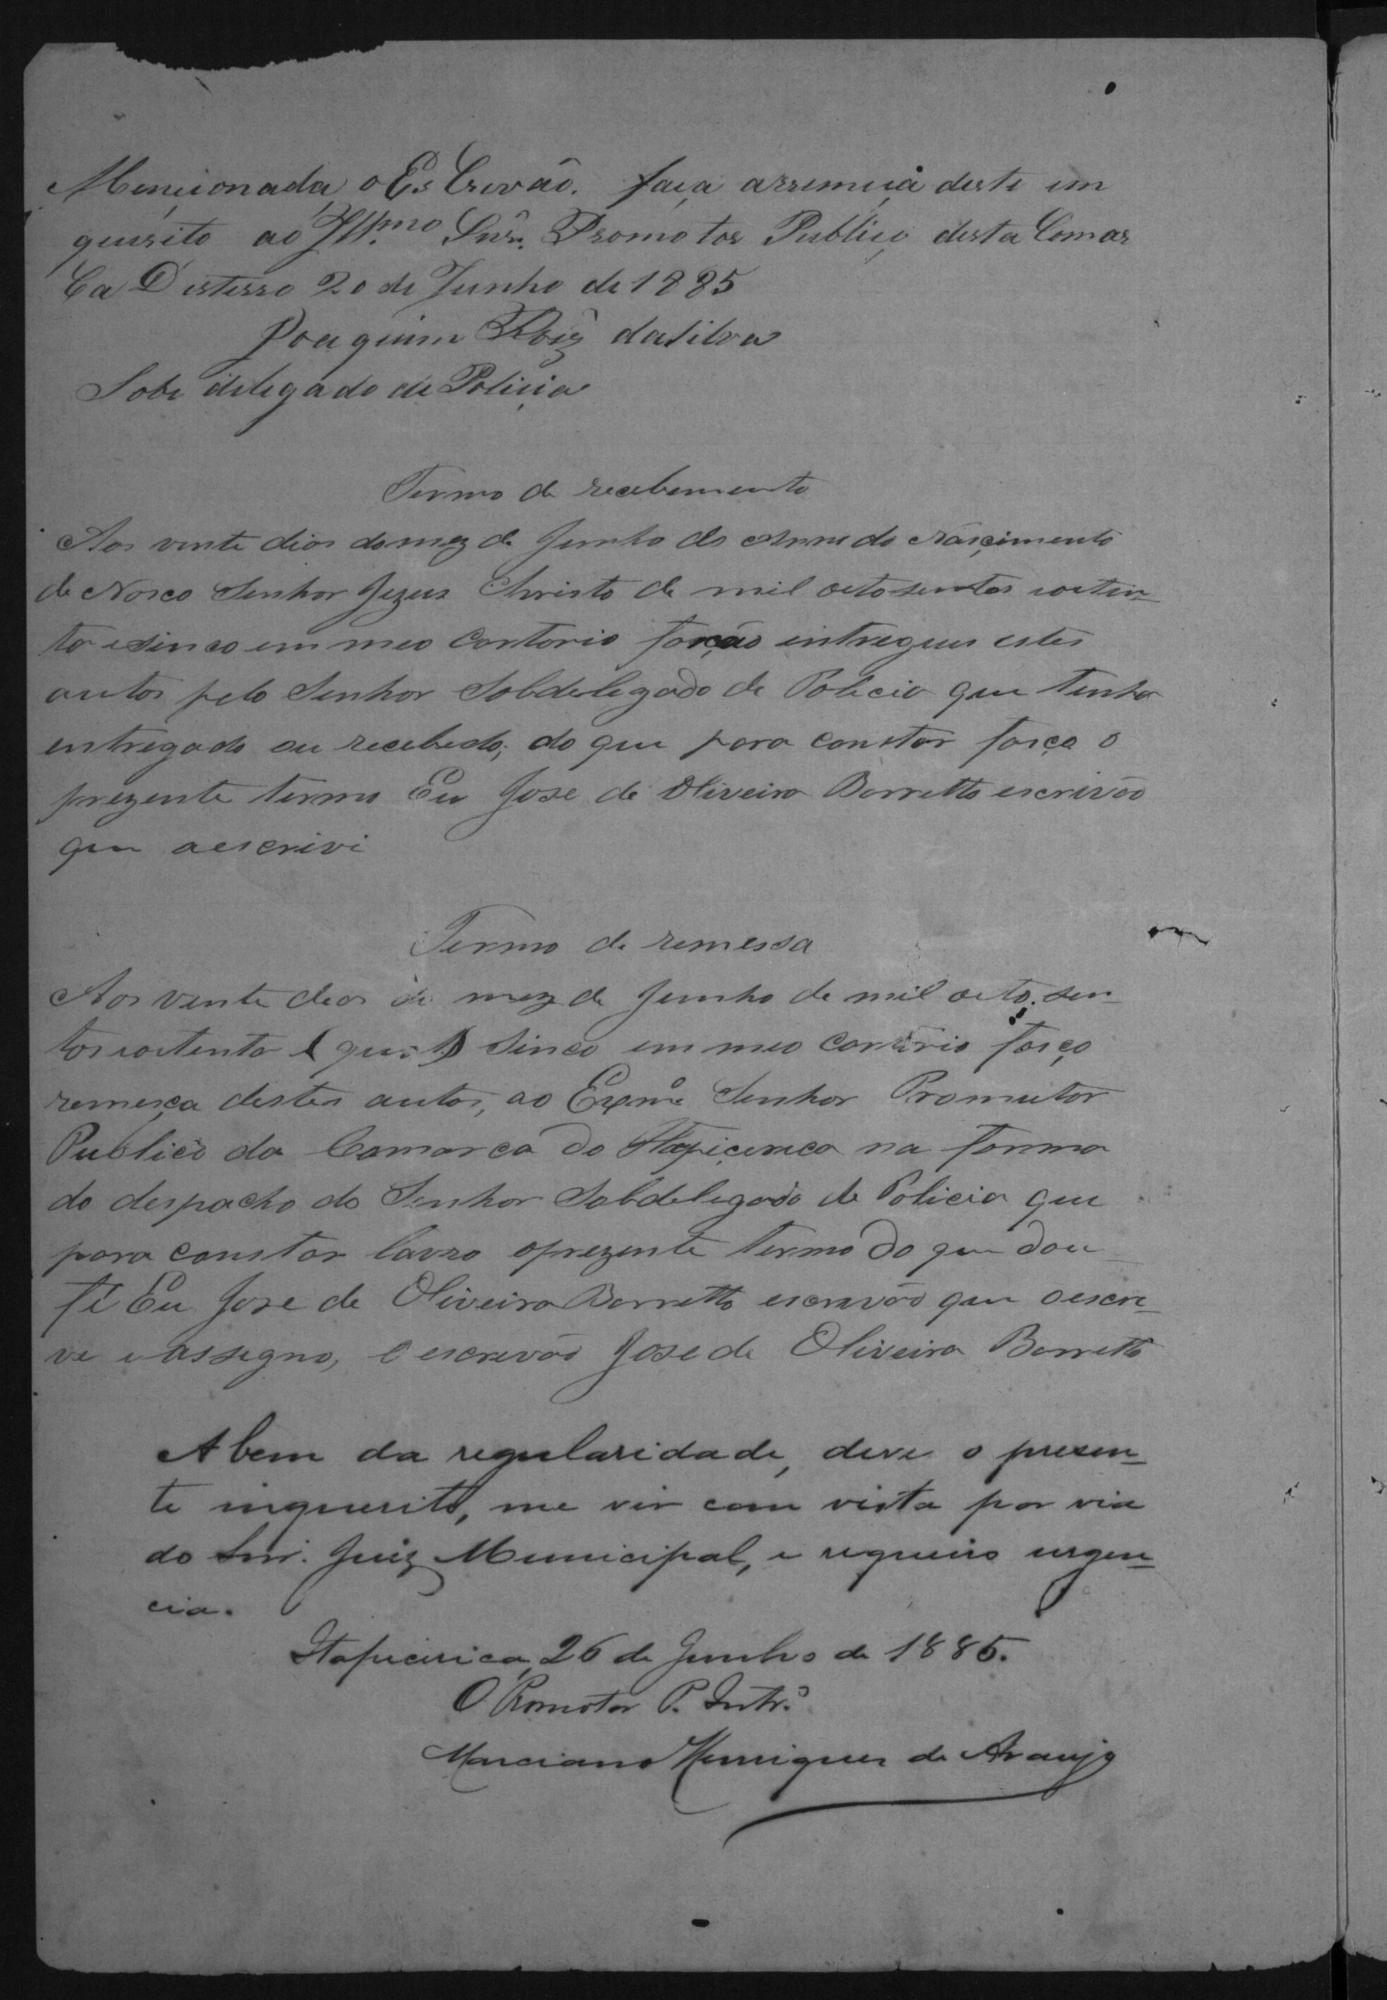 Mencionada, o Escrivão. faça arremeça deste em
queirito ao Illmo Snr. Promotor Publico desta Comar
Ca Disterro 20 de Junho de 1885
Joaquim Roiz da Silva
Sobe delegado de Policia
Termo de recebemento
Aos vinte dias do mez de Junho do Anno do Nascimento
de Noso Senhor Jezus Christo de mil oito sentos e oiten-
ta e sinco em meu Cartorio forão intregues estes
autos pelo Senhor Sobdelegado de Policia que tenho
entregado ou recebido; do que para constar faço o
prezente termo Eu Jose de Oliveira Barretto escrivão
que aescrivi
Termo de remessa
Aos vinte dias do mez de Junho de mil oito sen-
tos oitenta e sinco em meu Cartorio faço
remeça destes autos, ao Exmo Senhor Promutor
Publico da Comarca do Itapicerica na forma
do despacho do Senhor Sobdelegado de Policia que
para constar lavro oprezente termo do que dou
fé Eu Jose de Oliveira Barretto escrivão que oescre-
ve e assegno, O escrevão Jose de Oliveira Barretto
A bem da regularidade, deve o presen-
te inquerito, me vir com vista por via
do Snr. Juiz Municipal, e requeiro urgen-
cia.
Itapicirica, 26 de Junho de 1885.
O Promotor P. Intr.º
Marciano Henriques de Araujo